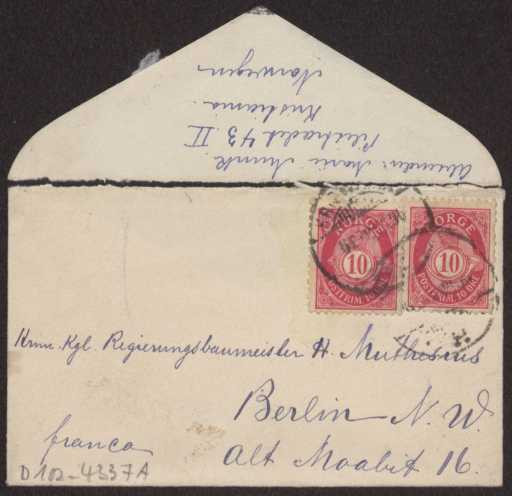 Absender: Marie Munk
Pilestradet 43 II
Kristiania
Norwegen
NORGE
10
POSTFRIM 10 ØRE
NORGE
10
POSTFRIM 10 ØRE
Herrn Kgl. Regierungsbaumeister H. Muthesius
Berlin N.W.
Alt Moabit 16.
franco
D 102-4337A